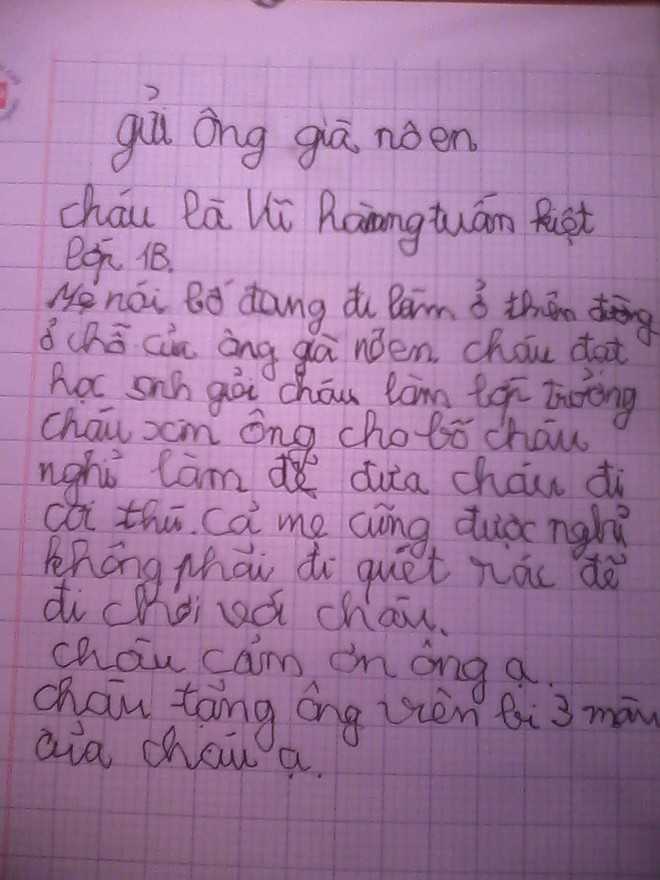 gửi ông già nôen
cháu là Vũ hoàng tuấn kiệt
lớp 1B.
Mẹ nói bố đang đi làm ở thiên đường
ở chỗ của ông già nôen. cháu đạt
học snh giỏi cháu làm lớp trưởng
cháu xin ông cho bố cháu
nghỉ làm để đưa cháu đi
cời thú. Cả mẹ cũng được nghỉ
không phải đi quét rác để
đi chơi với cháu.
cháu cảm ơn ông ạ.
cháu tảng ông viên bi 3 màu
của cháu ạ.